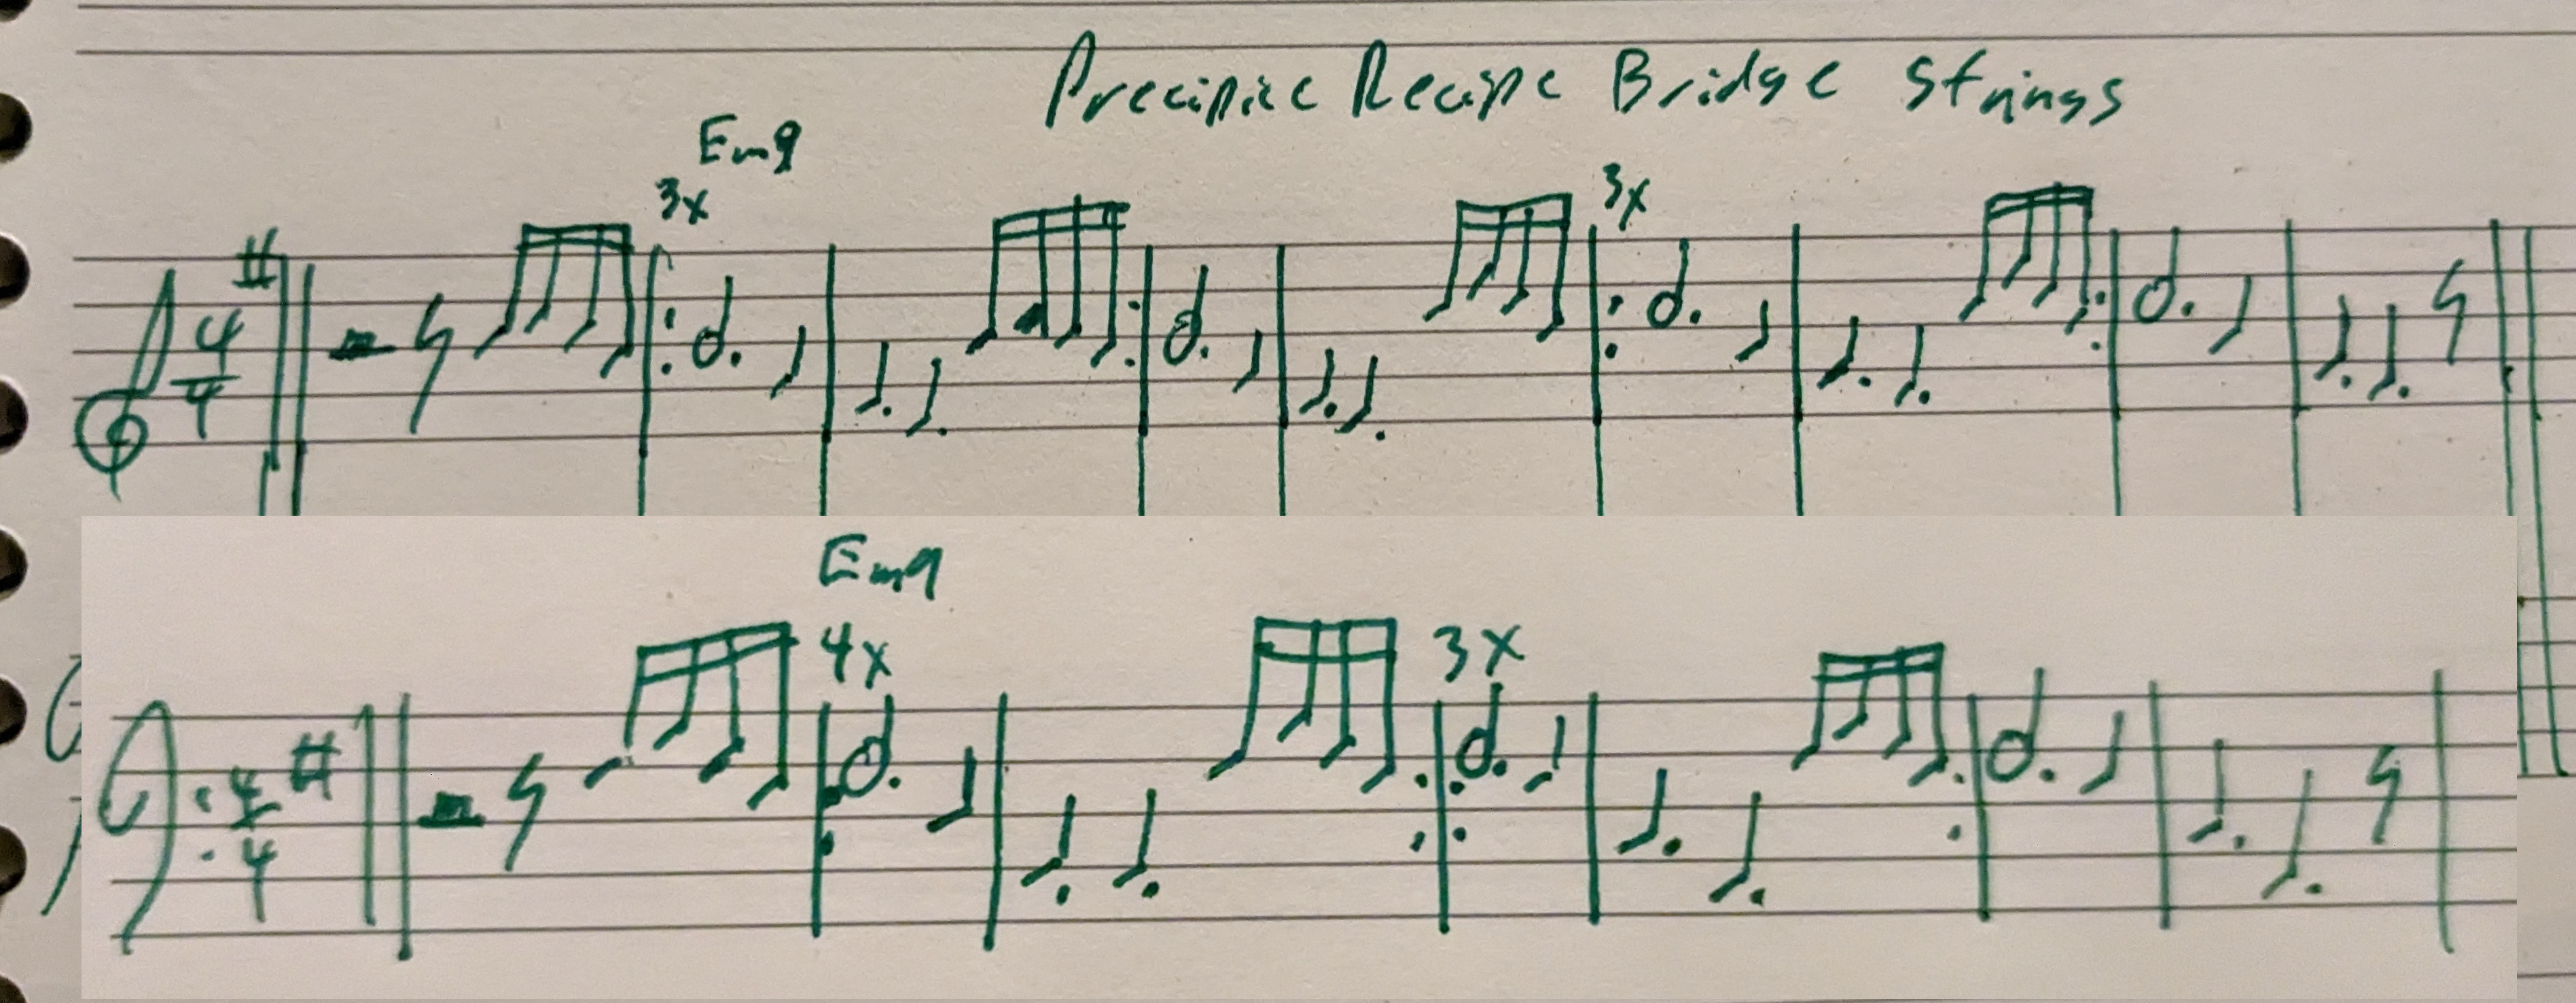 Precipice Recipe Bridge Strings
Em9
3x 3x
#
4
4
Em9
4x 3x
4 #
4